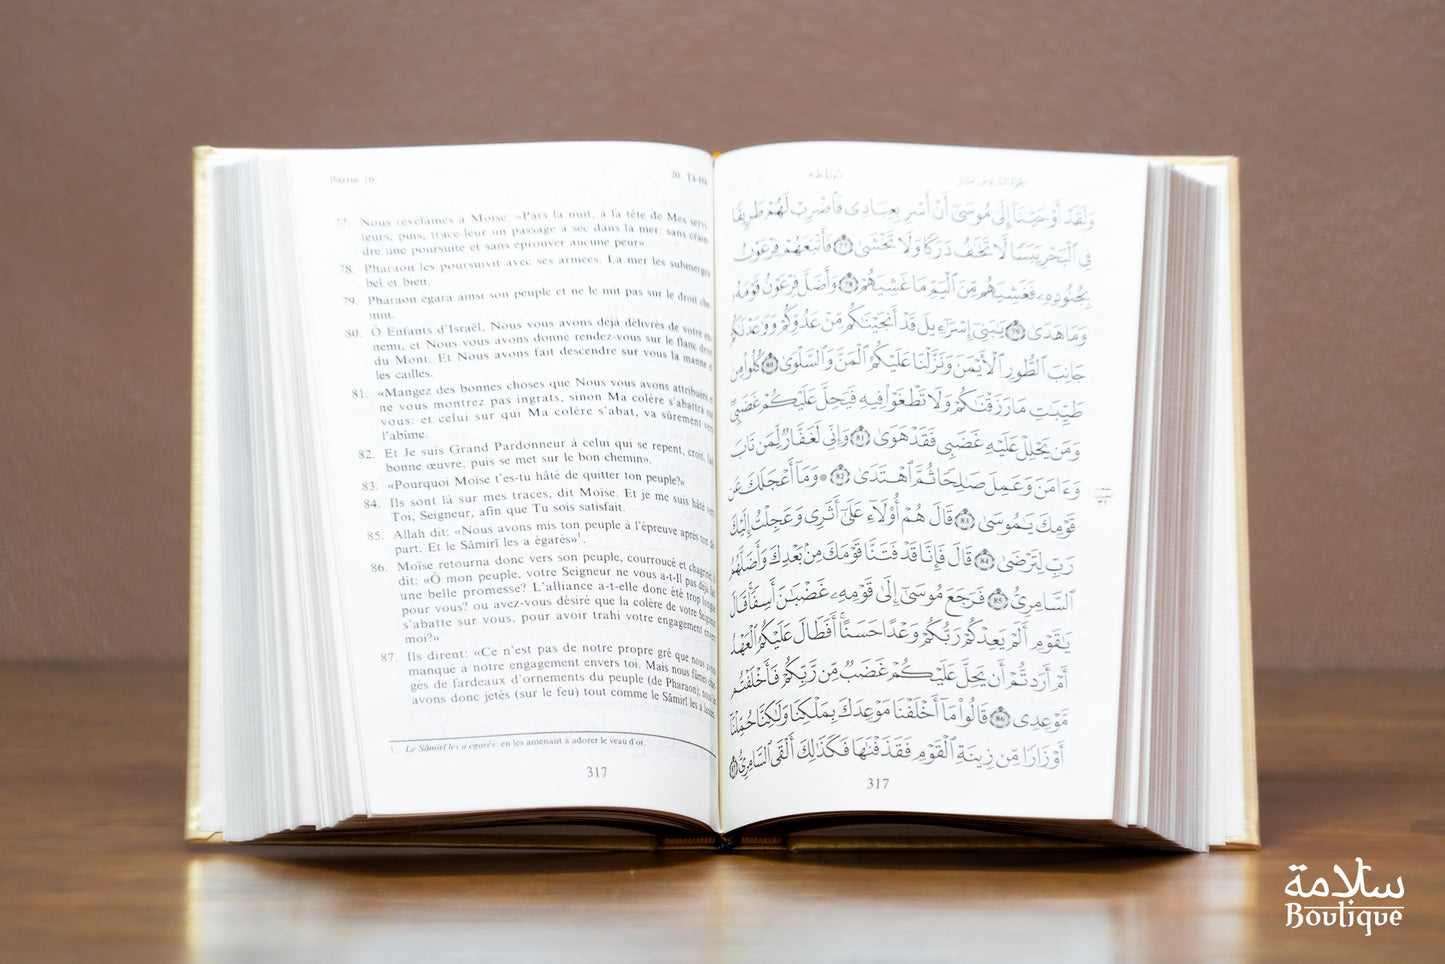 Partie 16
20. Tā-Hā
77. Nous révélâmes à Moïse: «Pars la nuit, à la tête de Mes servi-
teurs, puis, trace-leur un passage à sec dans la mer: sans crain-
dre une poursuite et sans éprouver aucune peur».
78. Pharaon les poursuivit avec ses armées. La mer les submergea
bel et bien.
79. Pharaon égara ainsi son peuple et ne le mit pas sur le droit che-
min.
80. Ô Enfants d'Israël, Nous vous avons déjà délivrés de votre en-
nemi, et Nous vous avons donné rendez-vous sur le flanc droit
du Mont. Et Nous avons fait descendre sur vous la manne et
les cailles.
81. «Mangez des bonnes choses que Nous vous avons attribuées et
ne vous montrez pas ingrats, sinon Ma colère s'abattra sur
vous: et celui sur qui Ma colère s'abat, va sûrement vers
l'abîme.
82. Et Je suis Grand Pardonneur à celui qui se repent, croit, fait
bonne œuvre, puis se met sur le bon chemin».
83. «Pourquoi Moïse t'es-tu hâté de quitter ton peuple?»
84. Ils sont là sur mes traces, dit Moïse. Et je me suis hâté vers
Toi, Seigneur, afin que Tu sois satisfait.
85. Allah dit: «Nous avons mis ton peuple à l'épreuve après ton dé-
part. Et le Sāmirī les a égarés»¹.
86. Moïse retourna donc vers son peuple, courroucé et chagriné; il
dit: «Ô mon peuple, votre Seigneur ne vous a-t-Il pas déjà fait
une belle promesse? L'alliance a-t-elle donc été trop longue
pour vous? ou avez-vous désiré que la colère de votre Seigneur
s'abatte sur vous, pour avoir trahi votre engagement envers
moi?»
87. Ils dirent: «Ce n'est pas de notre propre gré que nous avons
manqué à notre engagement envers toi. Mais nous fûmes char-
gés de fardeaux d'ornements du peuple (de Pharaon); nous les
avons donc jetés (sur le feu) tout comme le Sāmirī les a lancés.
1. Le Sāmirī les a égarés: en les amenant à adorer le veau d'or.
317
الجزء السادس عشر
سورة طه
وَلَقَدْ أَوْحَيْنَآ إِلَىٰ مُوسَىٰٓ أَنْ أَسْرِ بِعِبَادِى فَٱضْرِبْ لَهُمْ طَرِيقًا
فِى ٱلْبَحْرِ يَبَسًا لَّا تَخَٰفُ دَرَكًا وَلَا تَخْشَىٰ ٧٧ فَأَتْبَعَهُمْ فِرْعَوْنُ
بِجُنُودِهِۦ فَغَشِيَهُم مِّنَ ٱلْيَمِّ مَا غَشِيَهُمْ ٧٨ وَأَضَلَّ فِرْعَوْنُ قَوْمَهُۥ
وَمَا هَدَىٰ ٧٩ يَٰبَنِىٓ إِسْرَٰٓءِيلَ قَدْ أَنجَيْنَٰكُم مِّنْ عَدُوِّكُمْ وَوَٰعَدْنَٰكُمْ
جَانِبَ ٱلطُّورِ ٱلْأَيْمَنَ وَنَزَّلْنَا عَلَيْكُمُ ٱلْمَنَّ وَٱلسَّلْوَىٰ ٨٠ كُلُوا۟ مِن
طَيِّبَٰتِ مَا رَزَقْنَٰكُمْ وَلَا تَطْغَوْا۟ فِيهِ فَيَحِلَّ عَلَيْكُمْ غَضَبِى
وَمَن يَحْلِلْ عَلَيْهِ غَضَبِى فَقَدْ هَوَىٰ ٨١ وَإِنِّى لَغَفَّارٌ لِّمَن تَابَ
وَءَامَنَ وَعَمِلَ صَٰلِحًا ثُمَّ ٱهْتَدَىٰ ٨٢ ۞ وَمَآ أَعْجَلَكَ عَن
قَوْمِكَ يَٰمُوسَىٰ ٨٣ قَالَ هُمْ أُو۟لَآءِ عَلَىٰٓ أَثَرِى وَعَجِلْتُ إِلَيْكَ
رَبِّ لِتَرْضَىٰ ٨٤ قَالَ فَإِنَّا قَدْ فَتَنَّا قَوْمَكَ مِنۢ بَعْدِكَ وَأَضَلَّهُمُ
ٱلسَّامِرِىُّ ٨٥ فَرَجَعَ مُوسَىٰٓ إِلَىٰ قَوْمِهِۦ غَضْبَٰنَ أَسِفًا قَالَ
يَٰقَوْمِ أَلَمْ يَعِدْكُمْ رَبُّكُمْ وَعْدًا حَسَنًا أَفَطَالَ عَلَيْكُمُ ٱلْعَهْدُ
أَمْ أَرَدتُّمْ أَن يَحِلَّ عَلَيْكُمْ غَضَبٌ مِّن رَّبِّكُمْ فَأَخْلَفْتُم
مَّوْعِدِى ٨٦ قَالُوا۟ مَآ أَخْلَفْنَا مَوْعِدَكَ بِمَلْكِنَا وَلَٰكِنَّا حُمِّلْنَآ
أَوْزَارًا مِّن زِينَةِ ٱلْقَوْمِ فَقَذَفْنَٰهَا فَكَذَٰلِكَ أَلْقَى ٱلسَّامِرِىُّ ٨٧
317
سلامة
Boutique